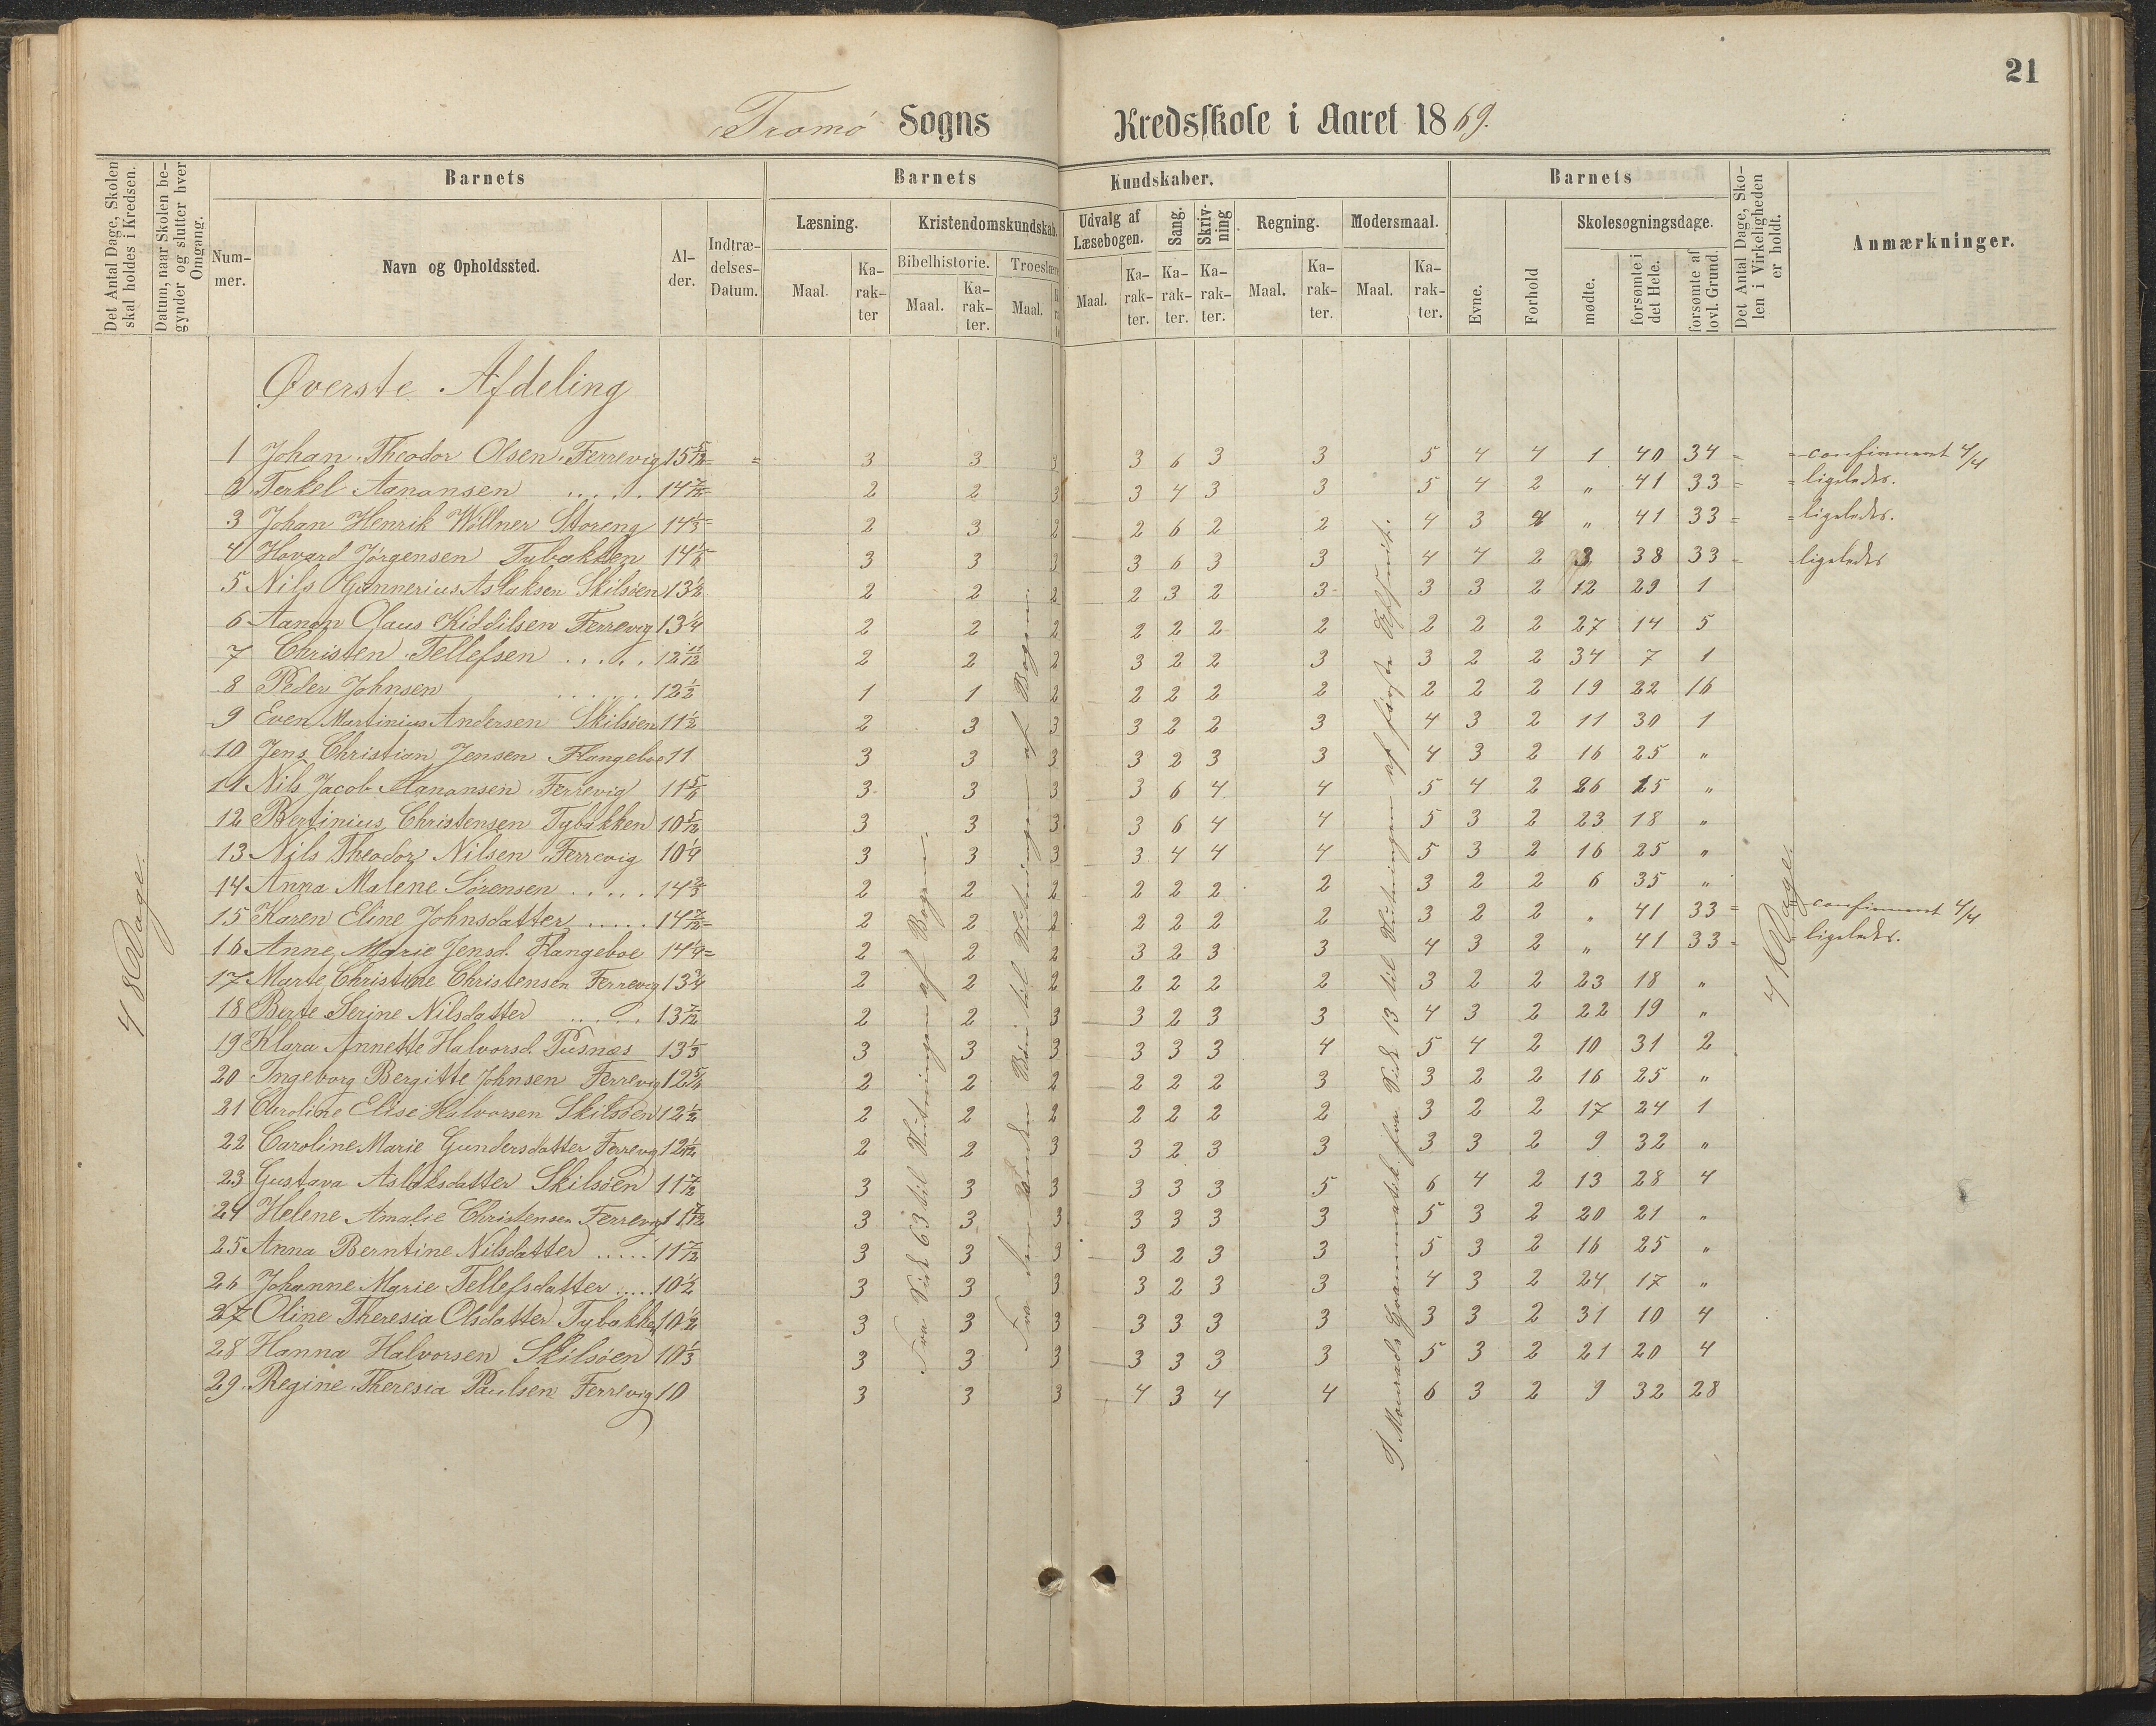 21
Tromø Sogns Kredsskole i Aaret 1869.
Det Antal Dage, Skolen skal holdes i Kredsen.
Datum, naar Skolen begynder og slutter hver Omgang.
Barnets
Nummer.
Navn og Opholdssted.
Alder.
Indtrædelses-Datum.
Barnets Kundskaber.
Læsning.
Maal.
Karakter
Kristendomskundskab.
Bibelhistorie.
Maal.
Karakter.
Troeslære
Maal.
Udvalg af Læsebogen.
Maal.
Karakter.
Sang.
Karakter.
Skrivning
Karakter.
Regning.
Maal.
Karakter.
Modersmaal.
Maal.
Karakter.
Barnets
Evne.
Forhold
Skolesøgningsdage.
mødte.
forsømte i det Hele.
forsømte af lovl. Grund.
Det Antal Dage, Skolen i Virkeligheden er holdt.
Anmærkninger.
Øverste Afdeling
1 Johan Theodor Olsen Ferrevig 15 5/12 = 3 3 3 3 6 3 3 5 4 4 1 40 34 confirmeret 4/4
2 Terkel Aanonsen ..... 14 7/12 2 2 3 3 4 3 3 5 4 2 „ 41 33 ligeledes.
3 Johan Henrik Wöllner Storeng 14 1/3 2 3 2 2 6 2 2 4 3 2 „ 41 33 ligeledes.
4 Hovard Jørgensen Tybakken 14 1/6 3 3 3 3 6 3 3 4 4 2 3 38 33 ligeledes
5 Nils Gunnerius Aslaksen Skilsöen 13 1/2 2 2 2 2 3 2 3 3 3 2 12 29 1
6 Aanon Olaus Kiddilsen Ferrevig 13 1/4 2 2 2 2 2 2 2 2 2 2 27 14 5
7 Christen Tellefsen ..... 12 11/12 2 2 2 3 2 2 3 3 2 2 34 7 1
8 Peder Johnsen ..... 12 1/2 1 1 2 2 2 2 2 2 2 2 19 22 16
9 Even Martinius Andersen Skilsöen 11 1/2 2 3 3 3 2 2 3 4 3 2 11 30 1
10 Jens Christian Jensen Flangeboe 11 3 3 3 3 2 3 3 4 3 2 16 25 „
11 Nils Jacob Aanonsen Ferrevig 11 5/6 3 3 3 3 6 4 4 5 4 2 26 15 „
12 Bertinius Christensen Tybakken 10 5/12 3 3 3 3 6 4 4 5 3 2 23 18 „
13 Nils Theodor Nilsen Ferrevig 10 1/4 3 3 3 3 4 4 4 5 3 2 16 25 „
14 Anna Malene Sörensen ..... 14 2/3 2 2 2 2 2 2 2 3 2 2 6 35 „
15 Karen Eline Johnsdatter ..... 14 7/12 2 2 2 2 2 2 2 3 2 2 „ 41 33 confirmeret 4/4
16 Anne Marie Jensd. Flangeboe 14 1/4 2 2 2 3 2 3 3 4 3 2 „ 41 33 ligeledes.
17 Marte Christine Christensen Ferrevig 13 3/4 2 2 2 2 2 2 2 3 2 2 23 18 „
18 Berte Serine Nilsdatter ..... 13 7/12 2 2 3 3 2 3 3 4 3 2 22 19 „
19 Klara Annette Halvorsd. Pusnæs 13 1/3 3 3 3 3 3 3 4 5 4 2 10 31 2
20 Ingeborg Bergitte Johnsen Ferrevig 12 5/6 2 2 2 2 2 2 3 3 2 2 16 25 „
21 Caroline Elise Halvorsen Skilsöen 12 1/2 2 2 2 2 2 2 2 3 2 2 17 24 1
22 Caroline Marie Gundersdatter Ferrevig 12 1/12 2 2 3 3 2 3 3 3 3 2 9 32 „
23 Gustava Aslaksdatter Skilsöen 11 7/12 3 3 3 3 3 3 5 6 4 2 13 28 4
24 Helene Amalie Christensen Ferrevig 11 7/12 3 3 3 3 3 3 3 5 3 2 20 21 „
25 Anna Berntine Nilsdatter ..... 11 7/12 3 3 3 3 2 3 3 5 3 2 16 25 „
26 Johanne Marie Tellefsdatter ..... 10 1/2 3 3 3 3 2 3 3 4 3 2 24 17 „
27 Oline Theresia Olsdatter Tybakken 10 1/2 3 3 3 3 3 3 3 3 3 2 31 10 4
28 Hanna Halvorsen Skilsöen 10 1/3 3 3 3 3 3 3 3 5 3 2 21 20 4
29. Regine Theresia Paulsen Ferrevig 10 3 3 3 4 3 4 4 6 3 2 9 32 28
48 Dage.
Fra Side 63 til Slutningen af Bogen.
Fra den Bön til Slutningen af Bogen.
fra Side 13 til Slutningen af første